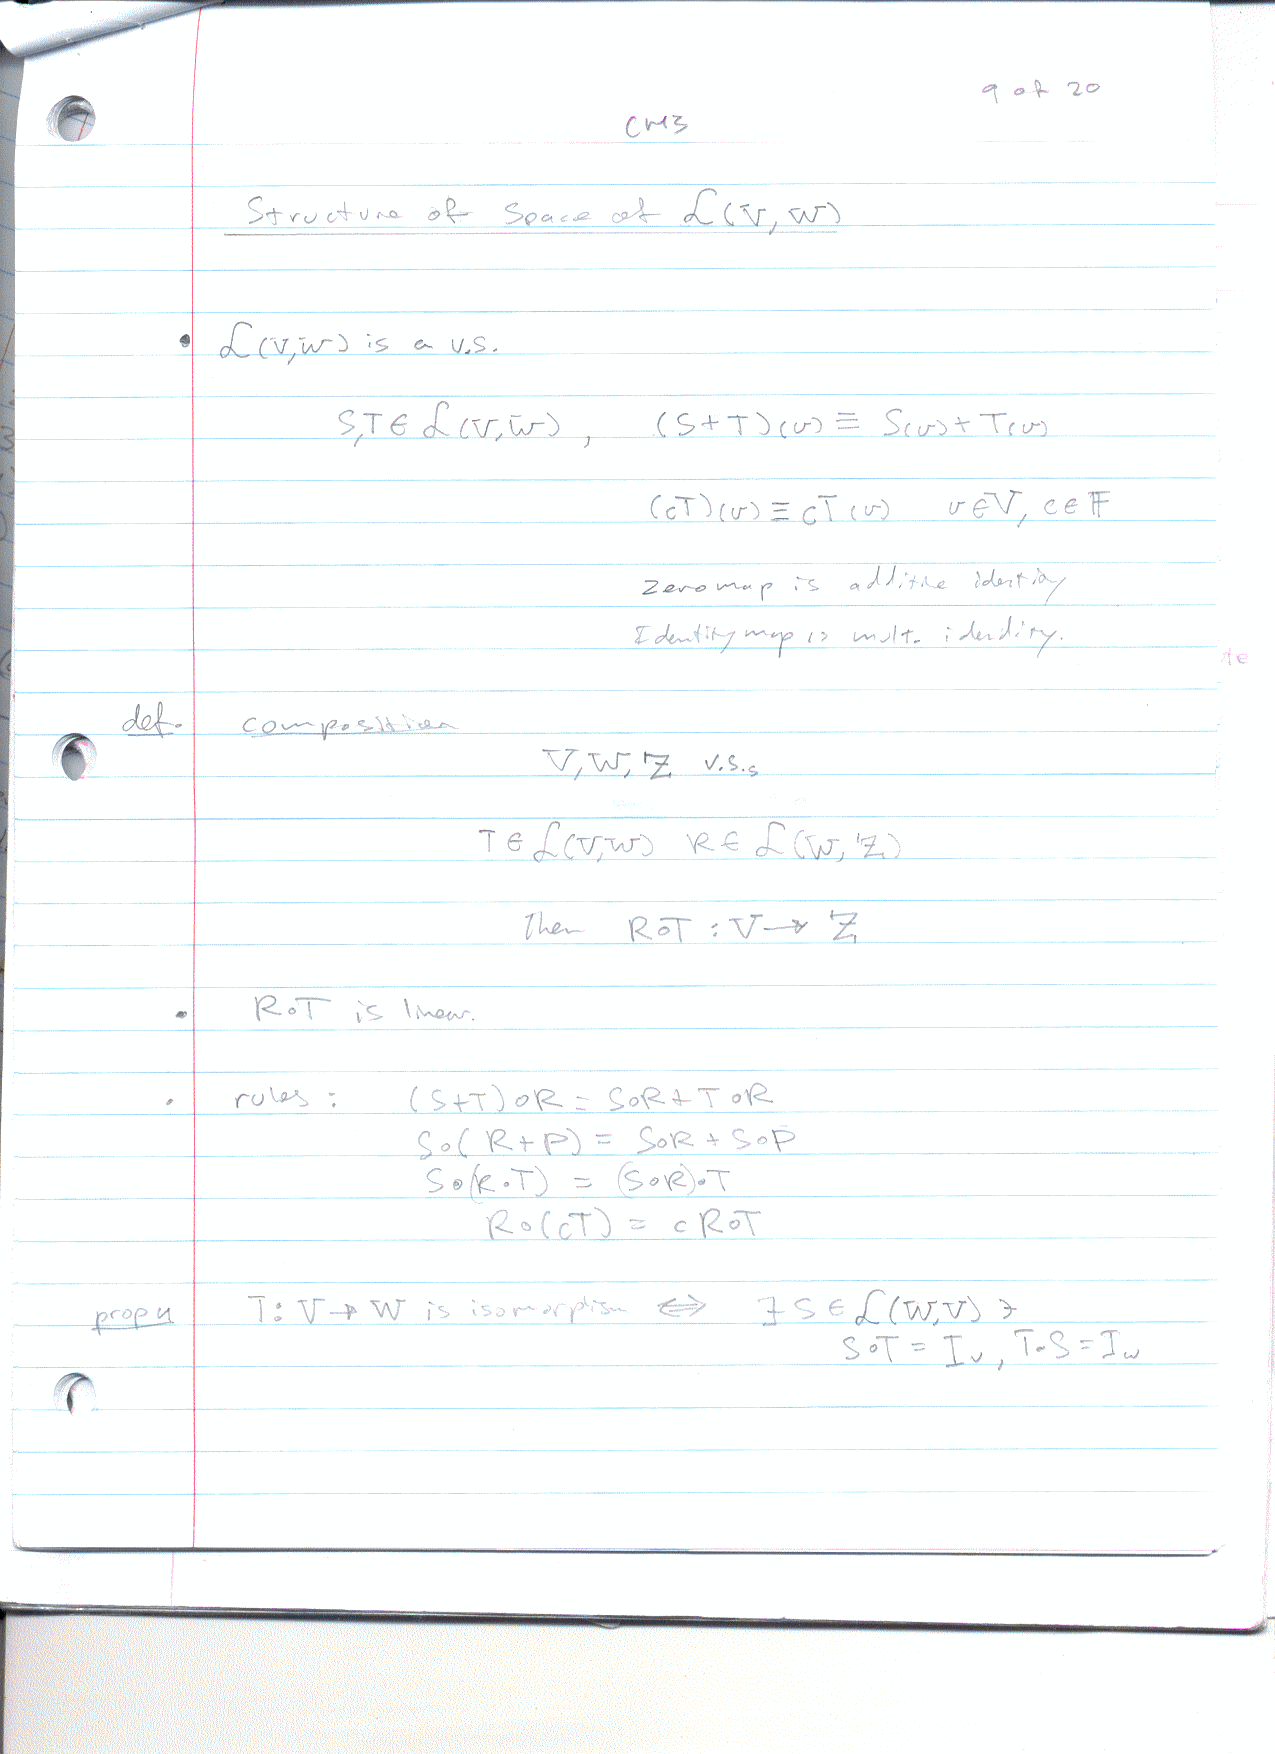 9 of 20
CH3
Structure of Space of ℒ(V, W)
• ℒ(V,W) is a v.s.
S,T ∈ ℒ(V,W), (S+T)(v) ≡ S(v)+T(v)
(cT)(v) ≡ cT(v) v∈V, c∈𝔽
Zero map is additive identity
Identity map is mult. identity.
def. composition
V, W, Z v.s.s
T ∈ ℒ(V,W) R ∈ ℒ(W, Z)
Then R∘T : V → Z
• R∘T is linear.
• rules: (S+T)∘R = S∘R + T∘R
S∘(R+P) = S∘R + S∘P
S∘(R∘T) = (S∘R)∘T
R∘(cT) = c R∘T
T: V → W is isomorpism ⟺ ∃ S ∈ ℒ(W,V) ∋
S∘T = I_V, T∘S = I_W